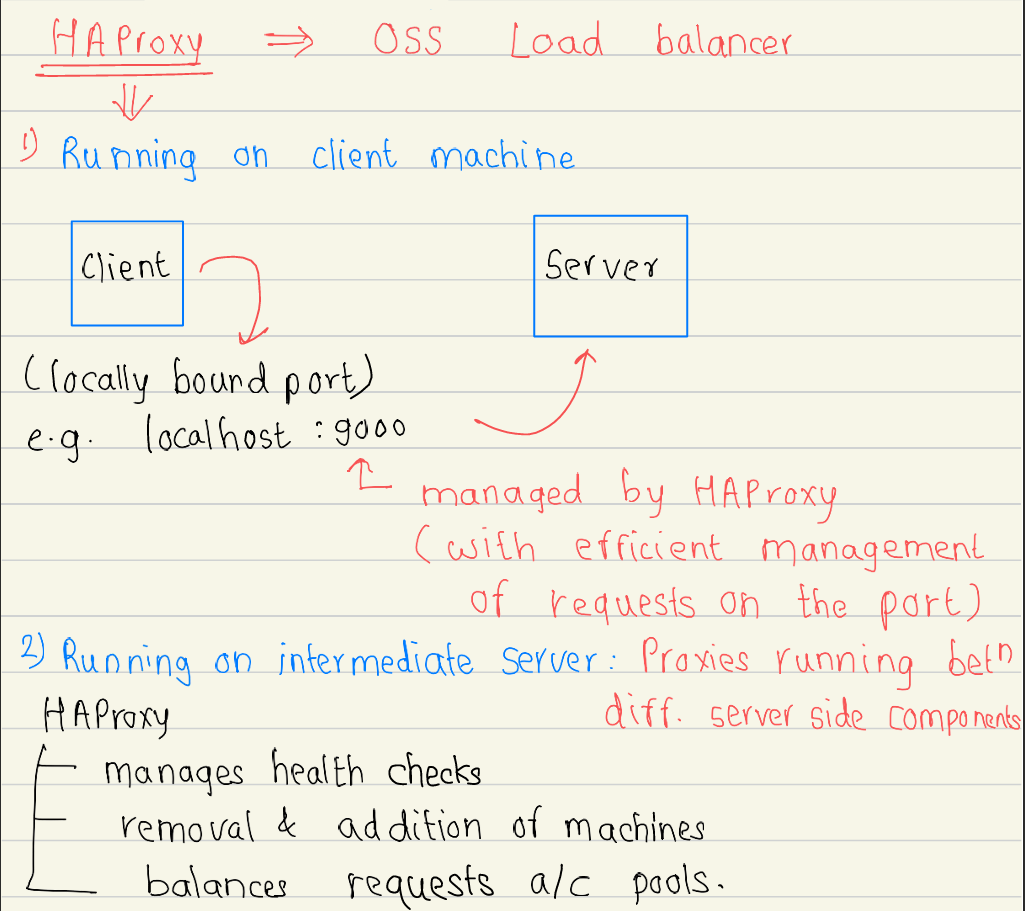 HAProxy ⇒ OSS Load balancer
1) Running on client machine
Client
Server
(locally bound port)
e.g. localhost :9000
managed by HAProxy
(with efficient management
of requests on the port)
2) Running on intermediate server: Proxies running betn
diff. server side components
HAProxy
manages health checks
removal & addition of machines
balances requests a/c pools.